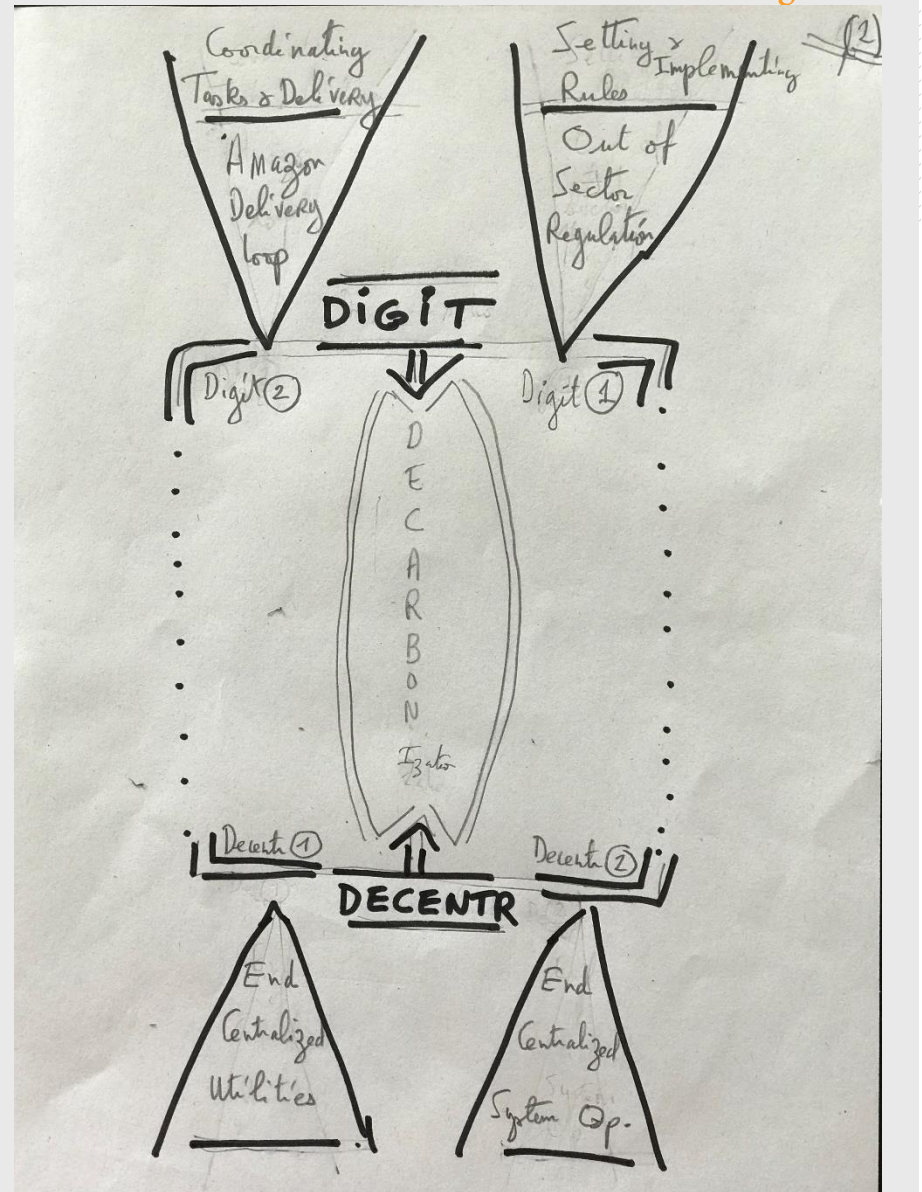 Coordinating
Tasks & Delivery
Amazon
Delivery
Loop
Setting &
Implementing
Rules
Out of
Sector
Regulation
(2)
DiGiT
Digit ②
Digit ①
D
E
C
A
R
B
O
N
Ization
Decentr ①
Decentr ②
DECENTR
End
Centralized
Utilities
End
Centralized
System Op.